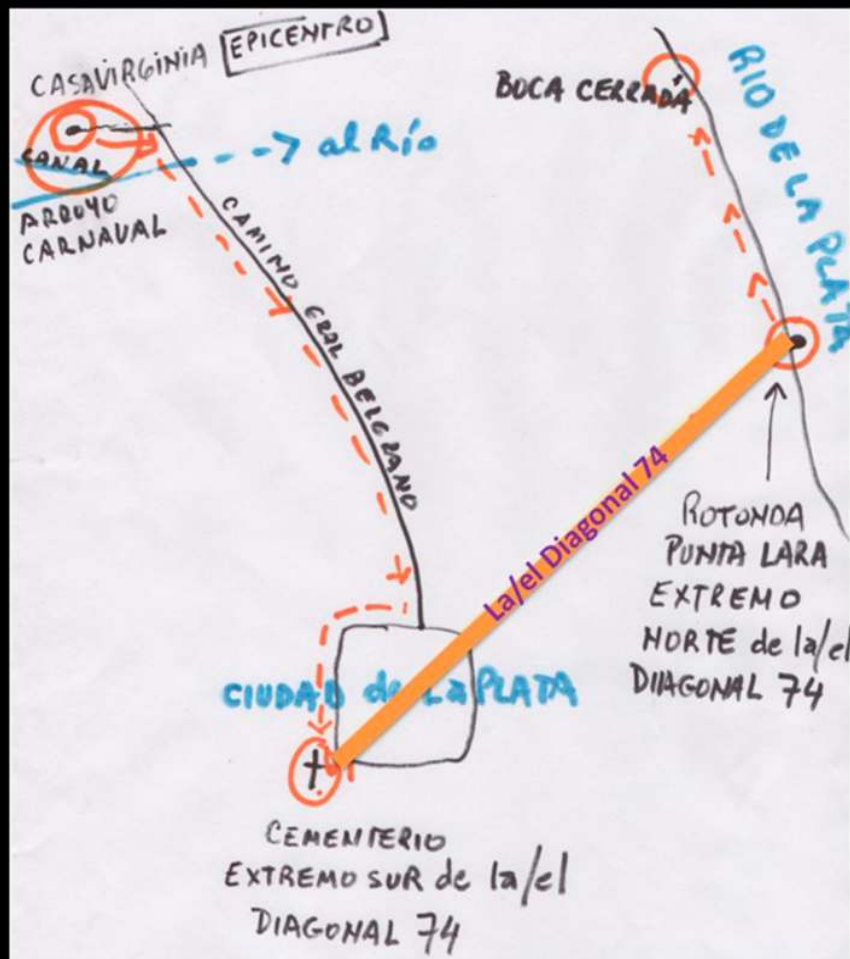 CASAVIRGINIA EPICENTRO
CANAL
ARROYO
CARNAVAL
--> al Río
CAMINO GRAL BELGRANO
BOCA CERRADA
RIO DE LA PLATA
La/el Diagonal 74
ROTONDA
PUNTA LARA
EXTREMO
NORTE de la/el
DIAGONAL 74
CIUDAD de LA PLATA
CEMENTERIO
EXTREMO SUR de la/el
DIAGONAL 74